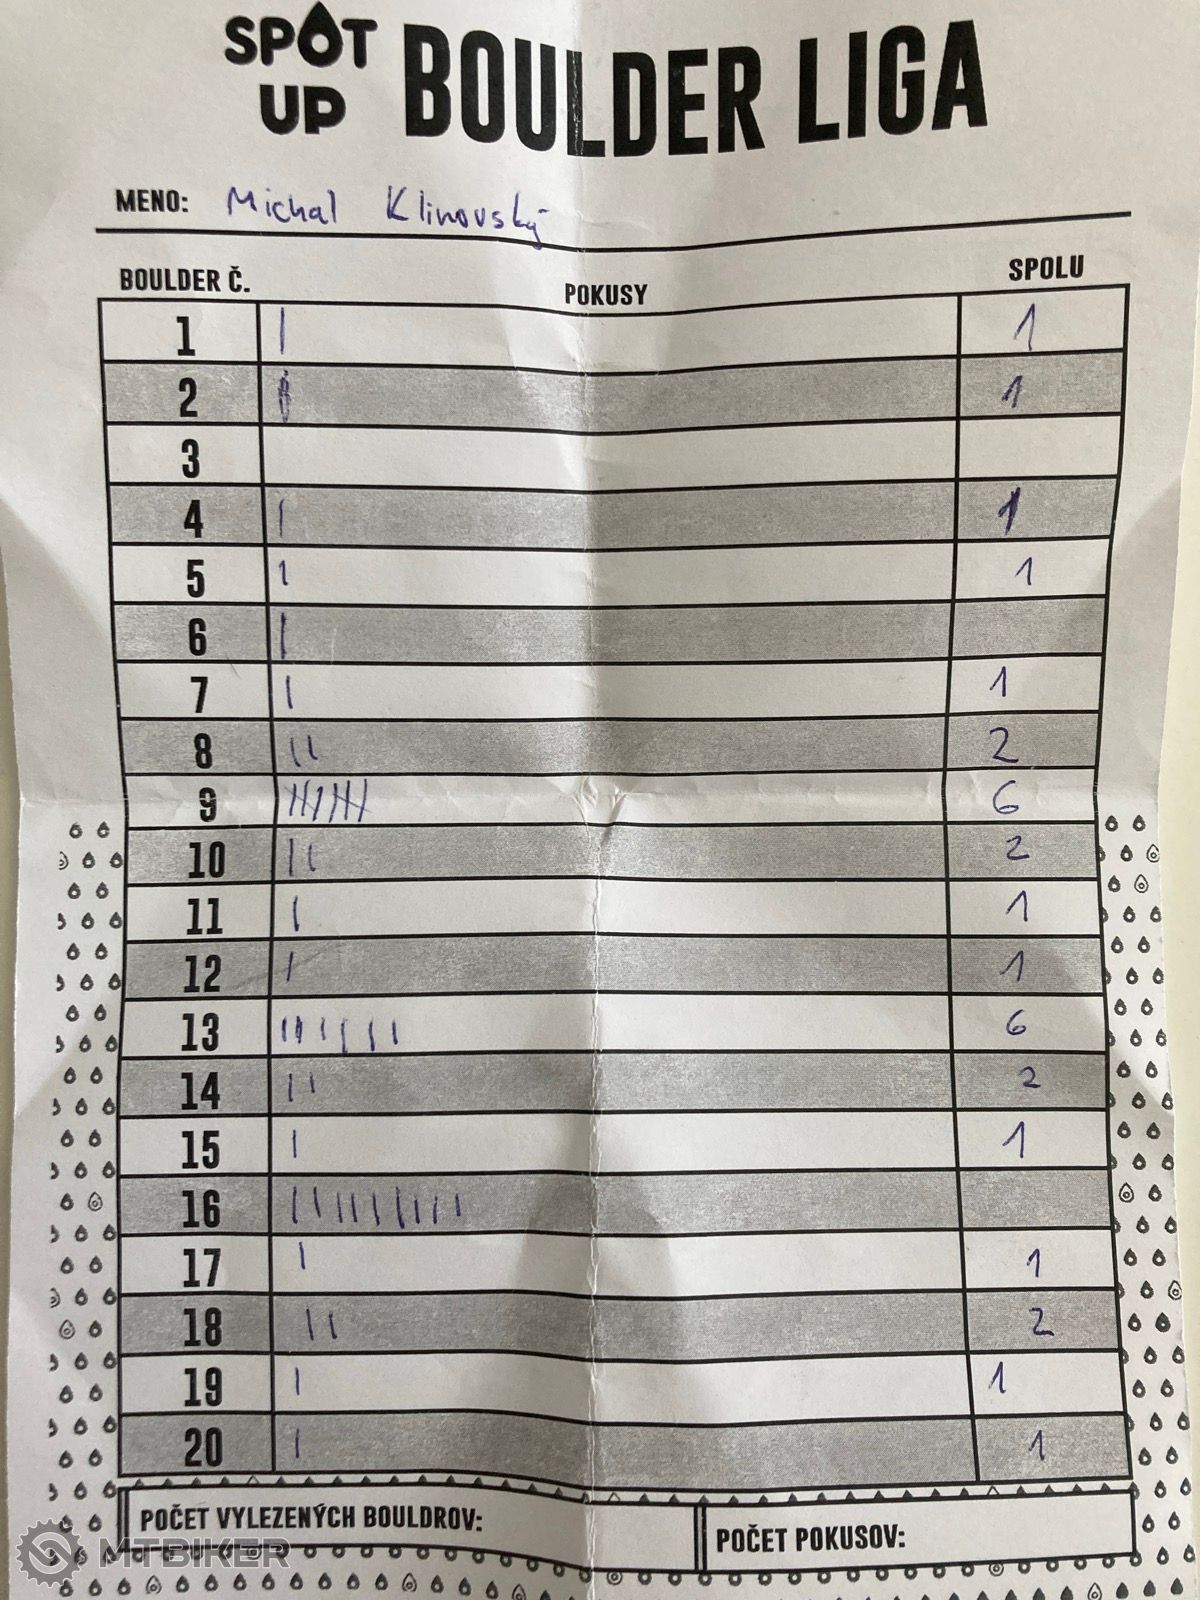 SPOT UP BOULDER LIGA
MENO: Michal Klinovský
BOULDER Č. POKUSY SPOLU
1 | 1
2 1
3
4 | 1
5 1 1
6 |
7 | 1
8 || 2
9 6
10 || 2
11 | 1
12 | 1
13 6
14 || 2
15 | 1
16 ||||||||||
17 | 1
18 || 2
19 | 1
20 | 1
POČET VYLEZENÝCH BOULDROV: POČET POKUSOV:
MTBIKER